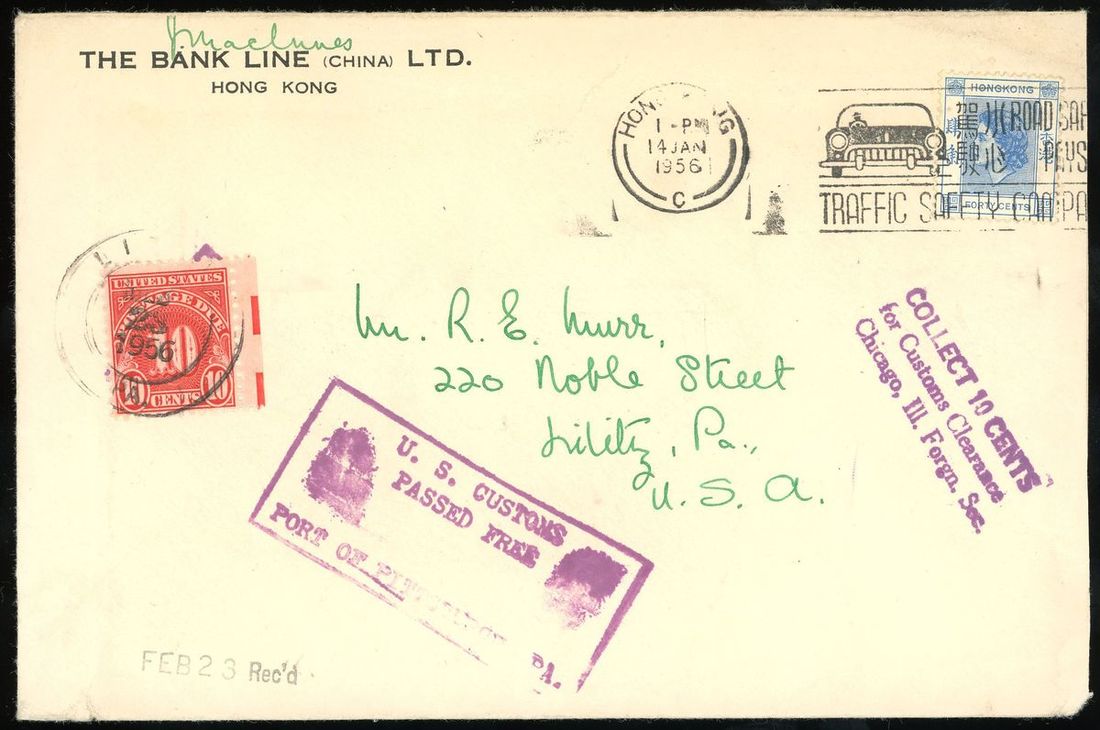 J MacInnes
THE BANK LINE (CHINA) LTD.
HONG KONG
HONG KONG
1 - PM
14 JAN
1956
C
小心駕駛
ROAD SAF
PAYS
TRAFFIC SAFETY CAMPA
HONGKONG
香港
FORTY CENTS
UNITED STATES
POSTAGE DUE
10
1956
PA.
10 CENTS 10
Mr. R. E. Murr,
220 Noble Street
Lititz, Pa.,
U. S. A.
COLLECT 10 CENTS
for Customs Clearance
Chicago, Ill. Forgn. Sec.
U. S. CUSTOMS
PASSED FREE
PORT OF PITTSBURGH PA.
FEB 23 Rec'd